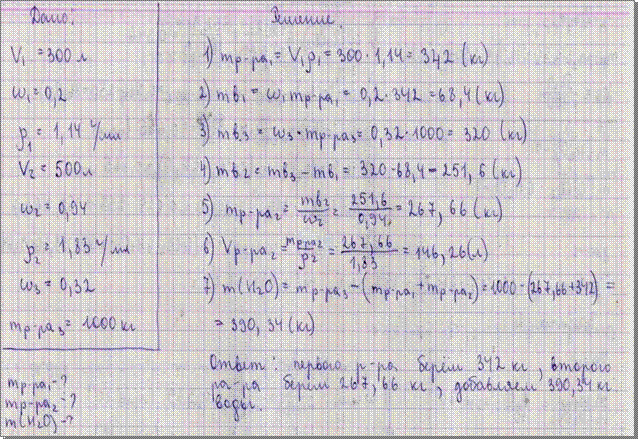 Дано:
V₁ = 300 л
ω₁ = 0,2
ρ₁ = 1,14 г/мл
V₂ = 500 л
ω₂ = 0,94
ρ₂ = 1,83 г/мл
ω₃ = 0,32
mр-ра₃ = 1000 кг
mр-ра₁-?
mр-ра₂-?
m(H₂O)-?
Решение.
1) mр-ра₁ = V₁ρ₁ = 300 · 1,14 = 342 (кг)
2) mв₁ = ω₁mр-ра₁ = 0,2 · 342 = 68,4 (кг)
3) mв₃ = ω₃ · mр-ра₃ = 0,32 · 1000 = 320 (кг)
4) mв₂ = mв₃ - mв₁ = 320 - 68,4 = 251,6 (кг)
5) mр-ра₂ = mв₂/ω₂ = 251,6/0,94 = 267,66 (кг)
6) Vр-ра₂ = mр-ра₂/ρ₂ = 267,66/1,83 = 146,26 (л)
7) m(H₂O) = mр-ра₃ - (mр-ра₁ + mр-ра₂) = 1000 - (267,66 + 342) =
= 390,34 (кг)
Ответ: первого р-ра берём 342 кг, второго
ра-ра берём 267,66 кг, добавляем 390,34 кг
воды.